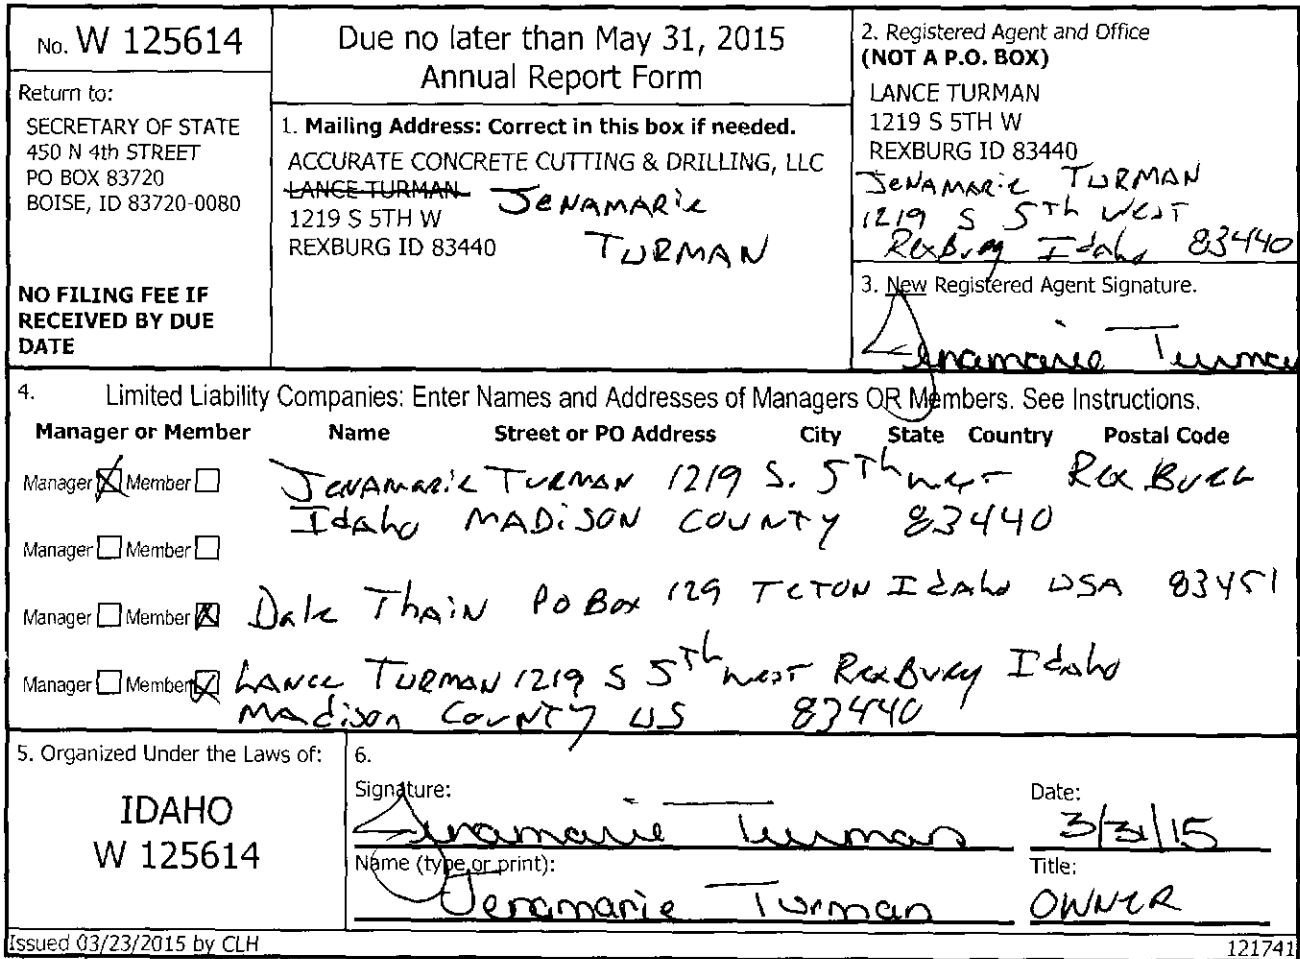 No. W 125614
Return to:
SECRETARY OF STATE
450 N 4th STREET
PO BOX 83720
BOISE, ID 83720-0080
NO FILING FEE IF
RECEIVED BY DUE
DATE
Due no later than May 31, 2015
Annual Report Form
1. Mailing Address: Correct in this box if needed.
ACCURATE CONCRETE CUTTING & DRILLING, LLC
LANCE TURMAN JENAMARIE
1219 S 5TH W
REXBURG ID 83440 TURMAN
2. Registered Agent and Office
(NOT A P.O. BOX)
LANCE TURMAN
1219 S 5TH W
REXBURG ID 83440
JENAMARIE TURMAN
1219 S 5Th WEST
RexBurg Idaho 83440
3. New Registered Agent Signature.
Jenamarie Turman
4. Limited Liability Companies: Enter Names and Addresses of Managers OR Members. See Instructions.
Manager or Member Name Street or PO Address City State Country Postal Code
Manager Member JENAMARIE TURMAN 1219 S. 5Th west RexBurg
Idaho MADISON COUNTY 83440
Manager Member
Manager Member Dale Thain PO Box 129 TETON Idaho USA 83451
Manager Member LANCE TURMAN 1219 S 5Th west RexBurg Idaho
Madison County US 83440
5. Organized Under the Laws of:
IDAHO
W 125614
6.
Signature: Date:
Jenamarie Turman 3/31/15
Name (type or print): Title:
Jenamarie Turman OWNER
Issued 03/23/2015 by CLH 121741